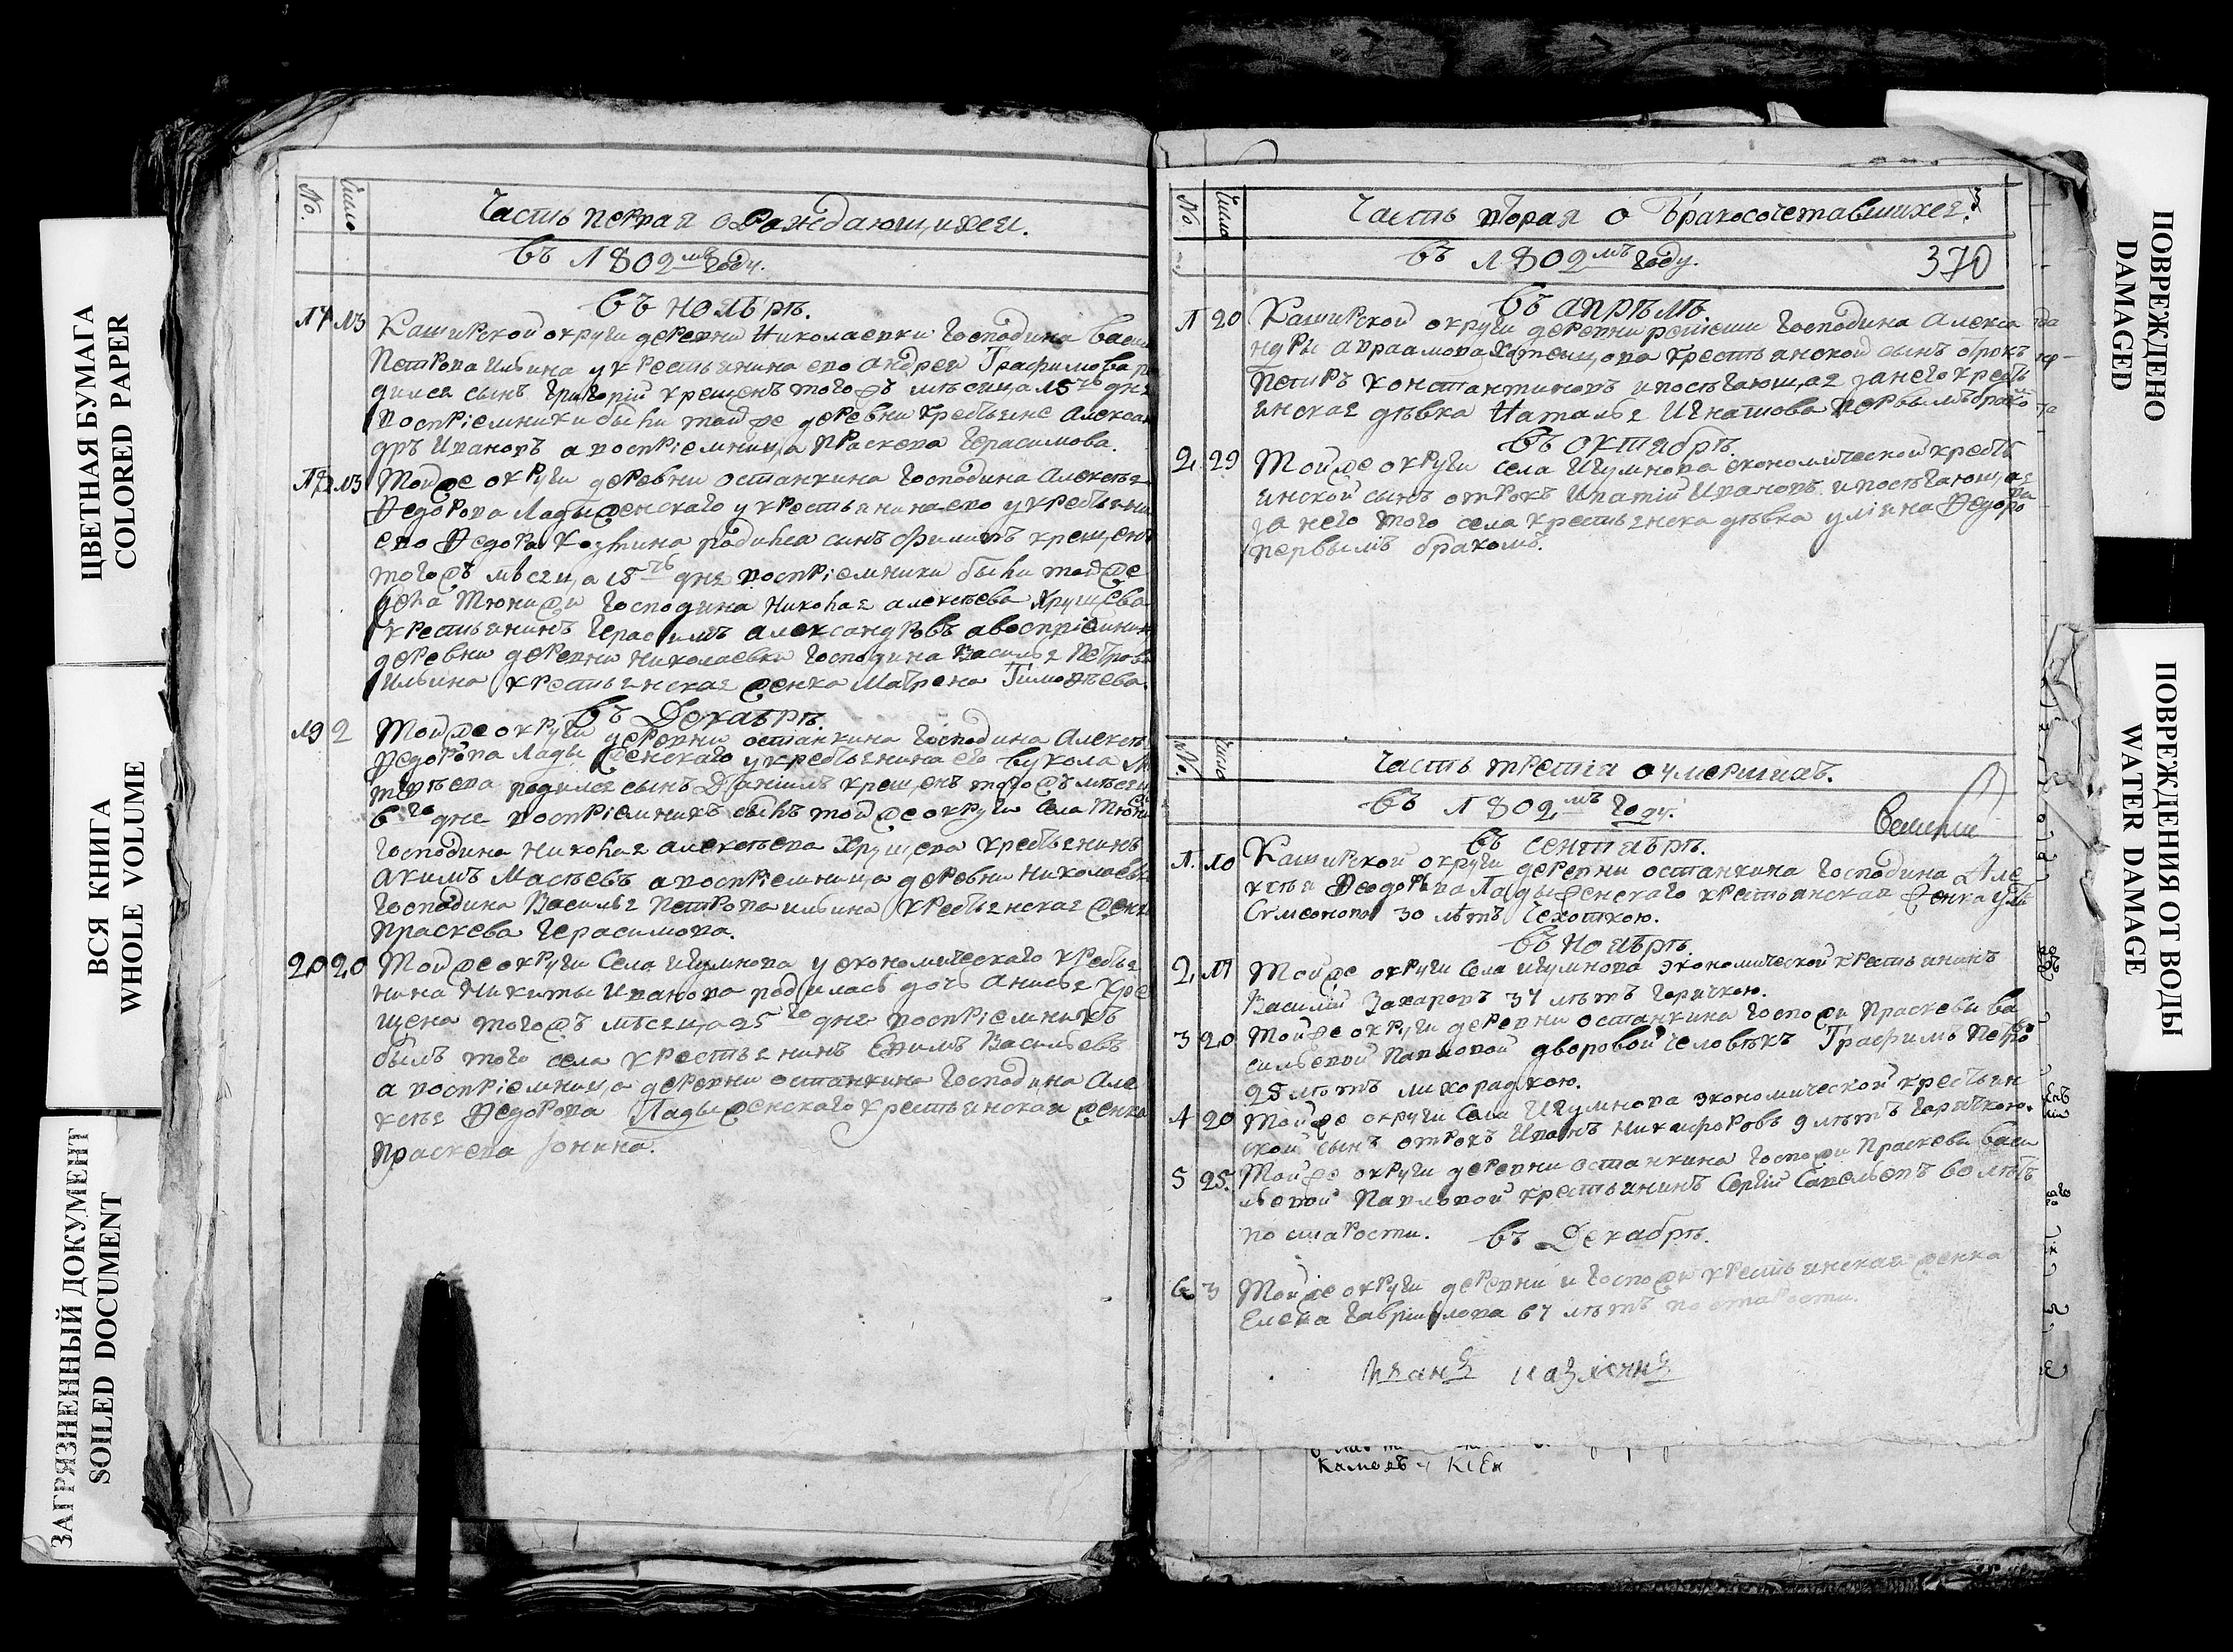 ЦВЕТНАЯ БУМАГА
COLORED PAPER
ВСЯ КНИГА
WHOLE VOLUME
ЗАГРЯЗНЕННЫЙ ДОКУМЕНТ
SOILED DOCUMENT
№. Число
Часть первая о Раждающихся.
въ 1802мъ году.
въ ноябрѣ.
17 13 Каширской округи деревни Николаевки Господина Васи
Петрова Ильина у крестьянина ево Андрея Трафимова р
дился сынъ Григорій крещенъ тогожъ мѣсяца 15го дня
воспріемники были тойже деревни крестьяне Алексан
дръ Ивановъ а воспріемница Праскева Герасимова.
13 Тойже округи деревни останкина Господина Алексѣя
Федорова Ладыженскаго у крестьянина ево у крестьяни
ево Федора Козмина родился сынъ Филипъ крещенъ
тогожъ мѣсяца 18го дня воспріемники были тойже
села Тюнежи Господина Николая алексѣева Хрущева
крестьянинъ Герасимъ александровъ а воспріемниц
деревни деревни Николаевки Господина Василья Петрова
Ильина крестьянская женка Матрена Тимофѣева.
въ Декабрѣ.
19 2 Тойже округи деревни останкина Господина Алексѣ
Федорова Ладыженскаго у крестьянина его Вукола М
твѣева родился сынъ Даніилъ крещенъ тогожъ мѣсяц
6го дня воспріемникъ былъ тойже округи села Тюне
Господина Николая алексѣева Хрущева крестьянинъ
Акимъ Масѣевъ а воспріемница деревни Николаевк
Господина Василья Петрова ильина крестьянская женк
Праскева Герасимова.
20 20 Тойже округи Села игумнова у економическаго крестья
нина Никиты Иванова родилась дочь Анисья кре
щена тогожъ мѣсяца 25го дня воспріемникъ
былъ того села крестьянинъ Ефимъ Васильевъ
а воспріемница деревни останкина Господина Але
ксѣя Федорова Ладыженскаго крестьянская женка
Праскева Іонина.
№. Число
Часть вторая о Бракосочетавшихся.
въ 1802мъ году.
370
въ апрѣлѣ.
1 20 Каширской округи деревни Господина Алекса
ндры авраамова крестьянской сынъ отрокъ
Петръ константиновъ и посягающая за него кресть
янская дѣвка Наталья Игнатова первымъ брако
въ октябрѣ.
2. 29 Тойже округи села Игумнова економической кресть
янской сынъ отрокъ Ипатій Ивановъ и посягающая
за него того села крестьянска дѣвка уліяна Федорова
первымъ бракомъ.
№. Число
Часть третія о умершихъ.
въ 1802мъ году.
въ сентябрѣ.
1. 10 Каширской округи деревни останкина Господина Але
ксѣя Феодорова Ладыженскаго крестьянская женка
Сумеонова 30 лѣтъ чехоткою.
въ ноябрѣ.
2. 11 Тойже округи Села игумнова экономической крестьянинъ
Василій Захаровъ 37 лѣтъ горячкою.
3 20 Тойже округи деревни останкина Госпожи Праскевы Ва
сильевой Павловой дворовой человѣкъ Трафимъ Петро
25 лѣтъ лихорадкою.
4 20 Тойже округи Села Игумнова экономической крестьян
ской сынъ отрокъ Иванъ Никифоровъ 9 лѣтъ горячкою.
5 25. Тойже округи деревни останкина Госпожи Праскевы Васи
льевой Павловой крестьянинъ Сергій Савельевъ 60 лѣтъ
по старости.
въ Декабрѣ.
6 3 Тойже округи деревни и Госпожи крестьянская женка
Елена Гавріилова 67 лѣтъ по старости.
ПОВРЕЖДЕНО
DAMAGED
ПОВРЕЖДЕНИЯ ОТ ВОДЫ
WATER DAMAGE